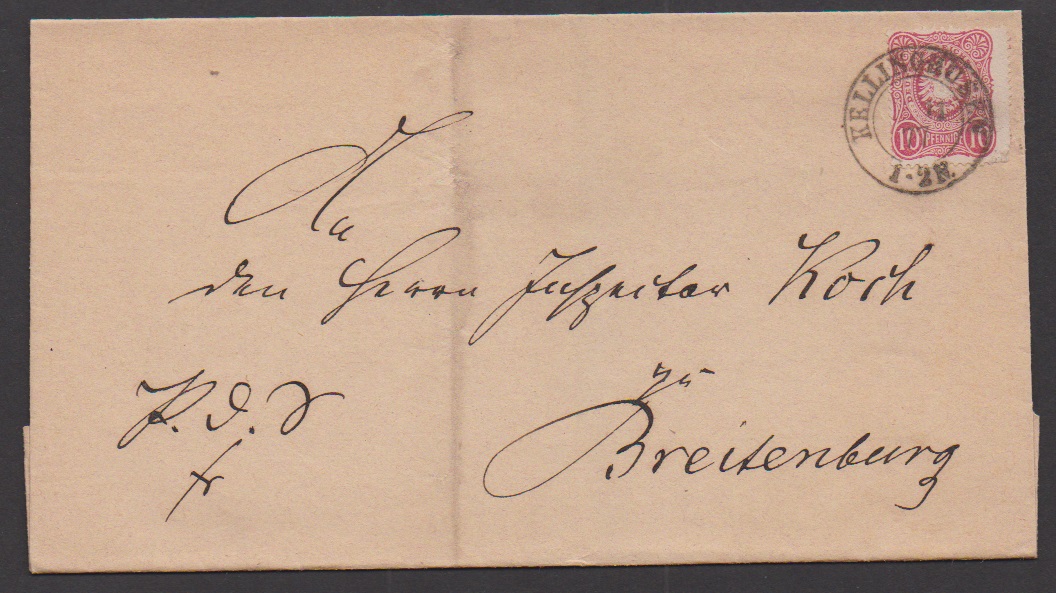 KELLINGHUSEN
11
1-2N.
10 PFENNIG 10
An
den Herrn Inspector Koch
zu
Breitenburg
P. d. S
fr